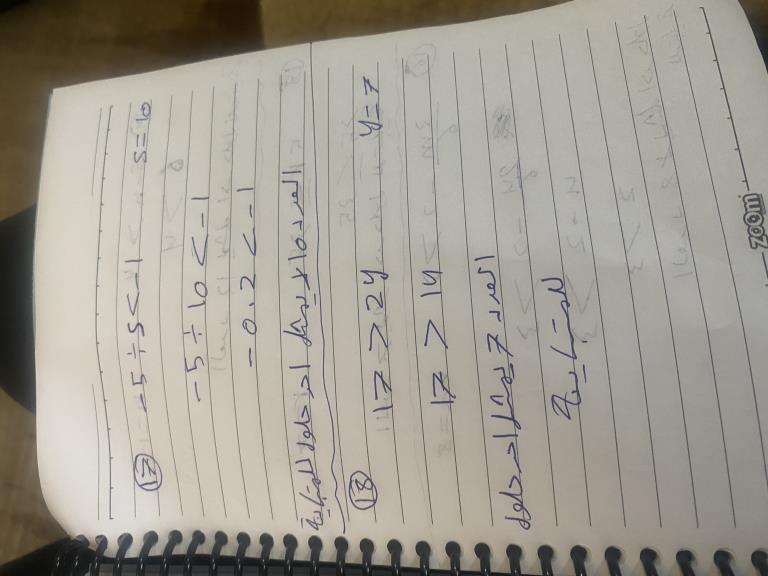 17 -5 ÷ s < -1 s = 10
-5 ÷ 10 < -1
-0.2 < -1
العدد 10 لا يمثل احد حلول المتباينة
18 17 > 2y y = 7
17 > 14
العدد 7 يمثل احد حلول
المتباينة
zoom